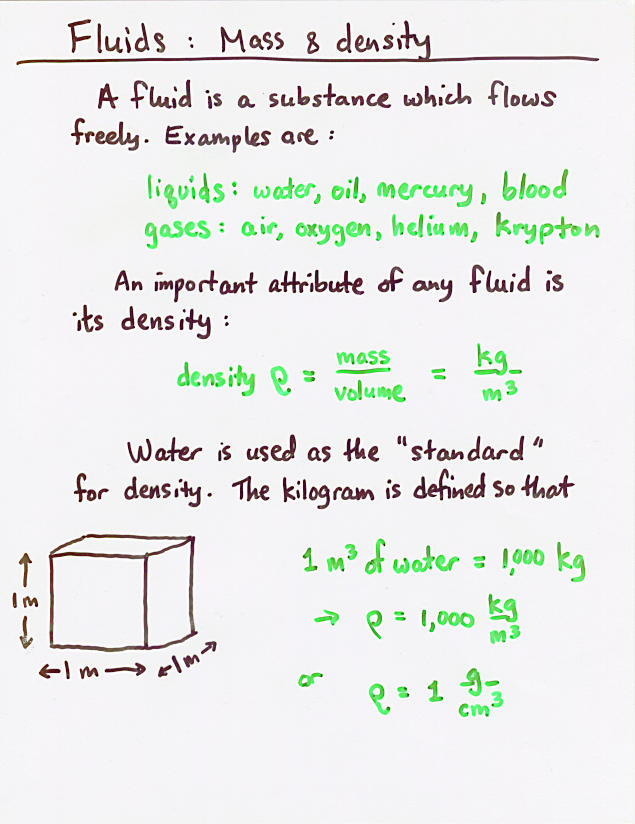 Fluids : Mass & density
A fluid is a substance which flows
freely. Examples are :
liquids : water, oil, mercury, blood
gases : air, oxygen, helium, krypton
An important attribute of any fluid is
its density :
density ρ = mass/volume = kg/m³
Water is used as the "standard"
for density. The kilogram is defined so that
1 m³ of water = 1,000 kg
→ ρ = 1,000 kg/m³
or ρ = 1 g/cm³
1m
←1 m→
←1m→